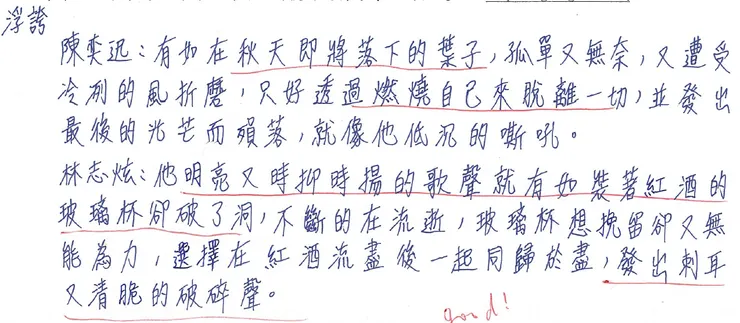 浮誇
陳奕迅：有如在秋天即將落下的葉子，孤單又無奈，又遭受
冷冽的風折磨，只好透過燃燒自己來脫離一切，並發出
最後的光芒而殞落，就像他低沉的嘶吼。
林志炫：他明亮又時抑時揚的歌聲就有如裝著紅酒的
玻璃杯卻破了洞，不斷的在流逝，玻璃杯想挽留卻又無
能為力，選擇在紅酒流盡後一起同歸於盡，發出刺耳
又清脆的破碎聲。
good!